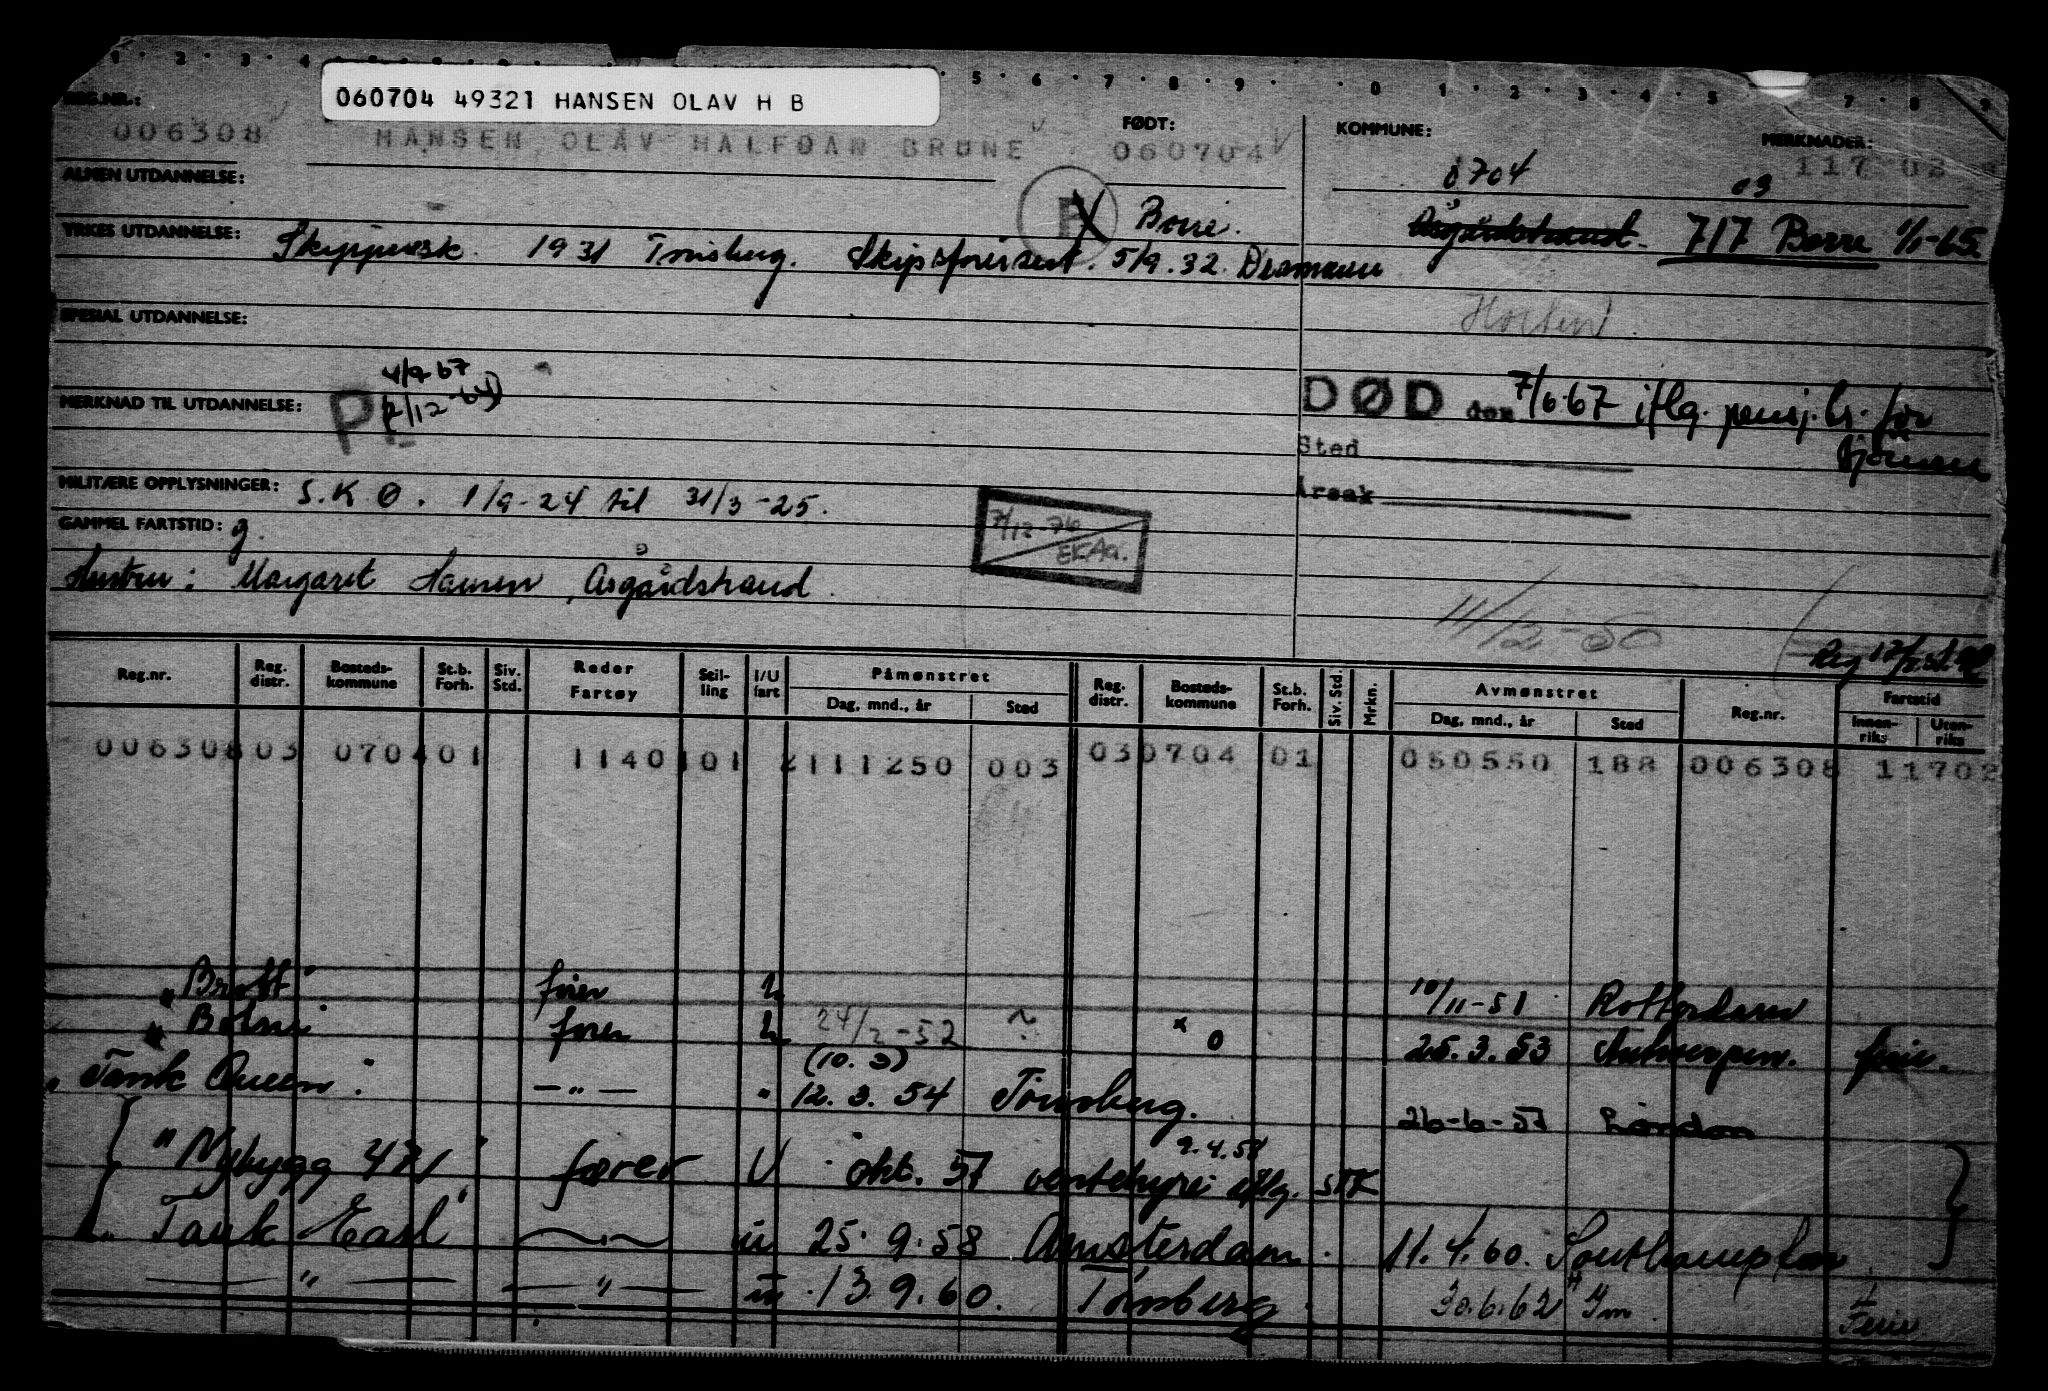 060704 49321 HANSEN OLAV H B
REG.NR.:
006308 HANSEN OLAV HALFDAN BRUNE
FØDT:
060704
KOMMUNE:
0704
MERKNADER:
117 02
03
ALMEN UTDANNELSE:
P Borre.
Åsgårdstrand. 717 Borre 1/1-65
YRKES UTDANNELSE: Skippersk. 1931 Tønsberg. Skipsførersert. 5/9.32 Drammen
Horten
SPESIAL UTDANNELSE:
4/9 67
MERKNAD TIL UTDANNELSE: P 2/12-64
DØD den 7/6-67 iflg. pensj.tr. for
sjømenn
Sted
Årsak
MILITÆRE OPPLYSNINGER: S.K.Ø. 1/9-24 til 31/3-25.
7/12-76
EKAa.
GAMMEL FARTSTID: g.
Hustru: Margaret Hansen, Åsgårdstrand.
11/2-50
Reg 17/
Reg.nr. Reg. distr. Bosteds-kommune St.b. Forh. Siv. Std. Reder Fartøy Stil-ling I/U fart Påmønstret Dag, mnd., år Sted Reg. distr. Bosteds-kommune St.b. Forh. Siv. Std. Mrkn. Avmønstret Dag, mnd., år Sted Reg.nr. Fartstid Innen-riks Uten-riks
006308 03 0704 01 1140 101 2111250 003 03 0704 01 050550 188 006308 11702
" Bratt" fører U 10/11-51 Rotterdam
" fører U 24/2-52 ? x 0 25.3.53 Antwerpen. ferie.
(10.3)
" Tank Queen" —"— " 12.3.54 Tønsberg. 26-6-57 London
" Nybygg 471" fører U okt. 57 ventehyre iflg. STK
9.4.58
" Tank Earl" —"— u 25.9.58 Amsterdam. 11.4.60. Southampton
—"— —"— u 13.9.60. Tønsberg. 30.6.62 Jm. Ferie